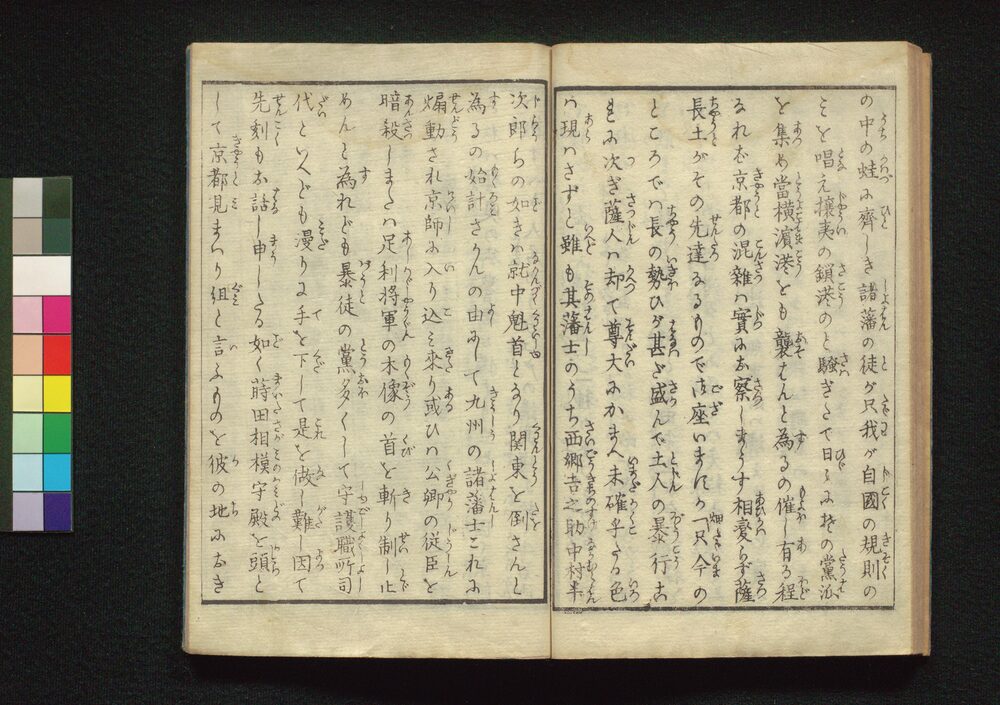 の中の蛙に齊しき諸藩の徒が只我が自國の規則の
ミを唱え攘夷の鎖港のと騒ぎたて日々にその黨派
を集め當横濱港をも襲はんと為るの催し有る程
なれバ京都の混雜ハ實にお察しまうす相変らず薩
長土がその先達なるもので御座いまにハ「只今の
ところでハ長の勢ひが甚ど盛んで土人の暴行こ
れに次ぎ薩人ハ却て尊大にかまへ未確乎たる色
ハ現ハさずと雖も其藩士のうち西郷吉之助中村半
次郎らの如きハ就中魁首となり関東を倒さんと
為るの始計さかんの由にして九州の諸藩士これに
煽動され京師に入り込ミ來り或ひハ公卿の従臣を
暗殺しまたハ足利將軍の木像の首を斬り制し止
めんと為れども暴徒の黨多くして守護職所司
代といへども漫りに手を下して是を做し難し因て
先刻もお話し申したる如く蒔田相模守殿を頭と
して京都見まハり組と言ふものを彼の地におき